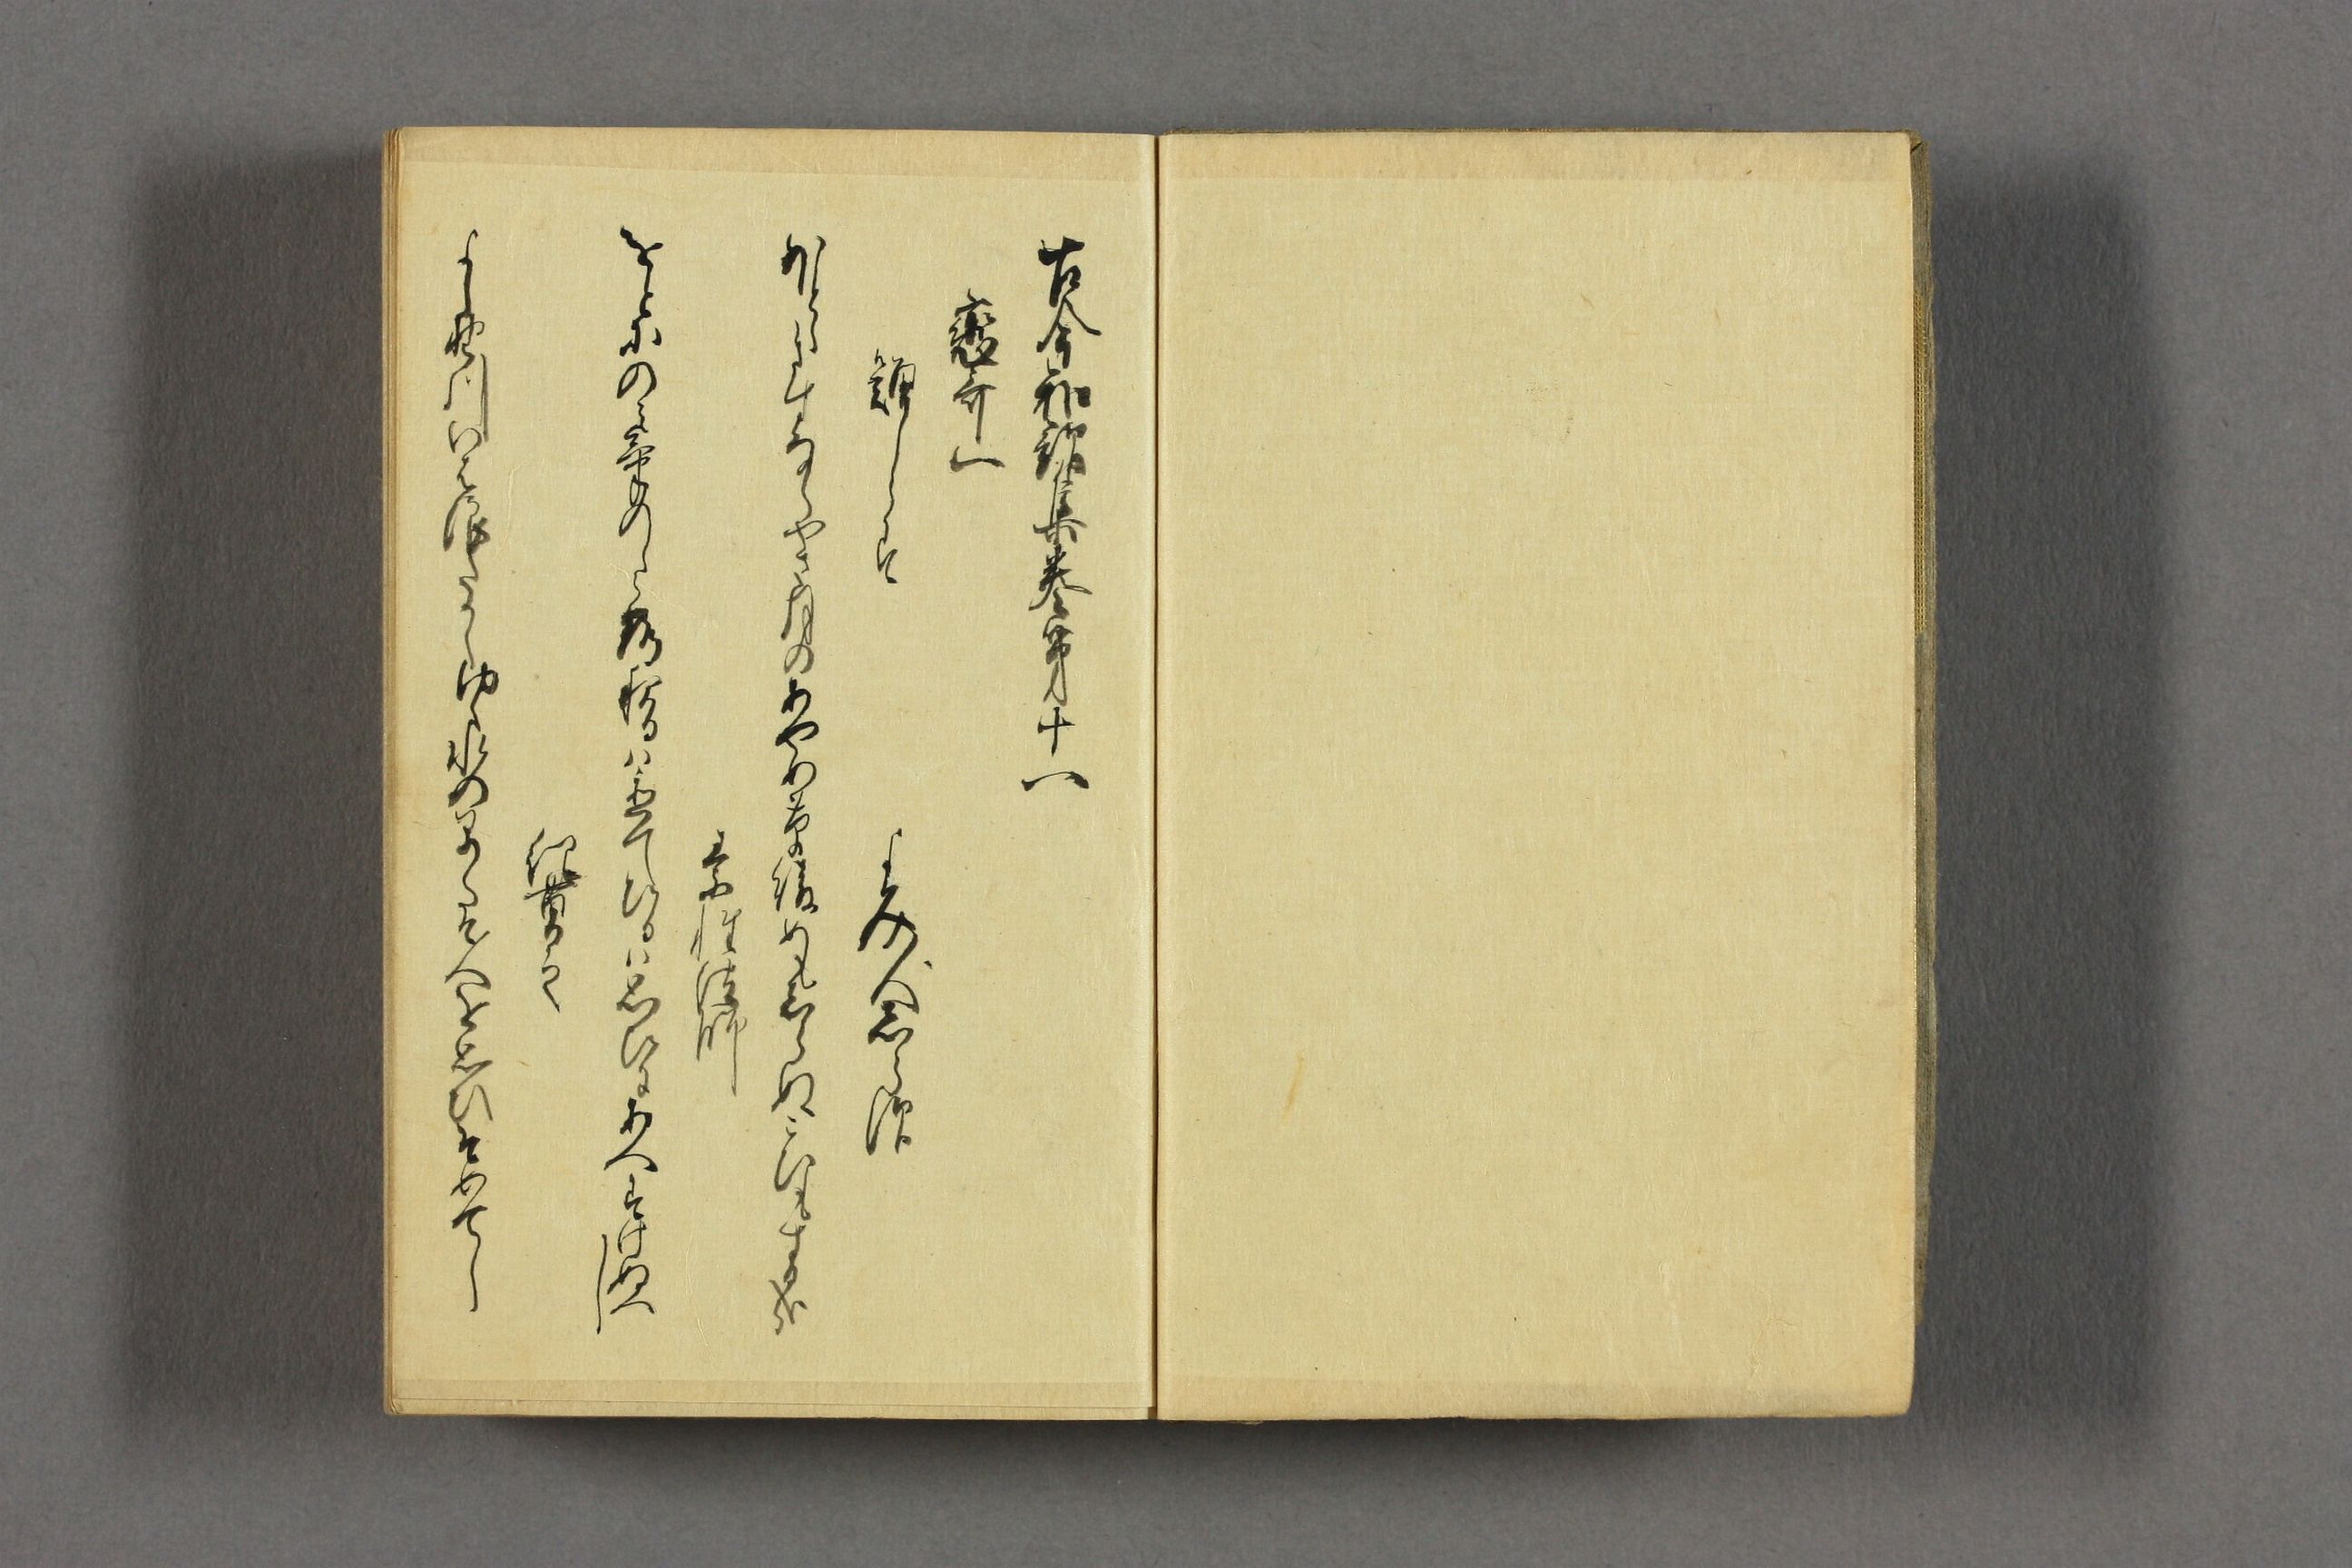 古今和謌集巻第十一
戀哥一
題しらす　よみ人しらす
ほとゝきすなくやさ月のあやめ草綾めもしらぬこひもする哉
素性法師
をとにのみきくのしら露夜るはをきてひるは思ひにあへすけぬへし
紀貫之
よし野川いは浪たかくゆく水のはやくそ人を思ひそめてし